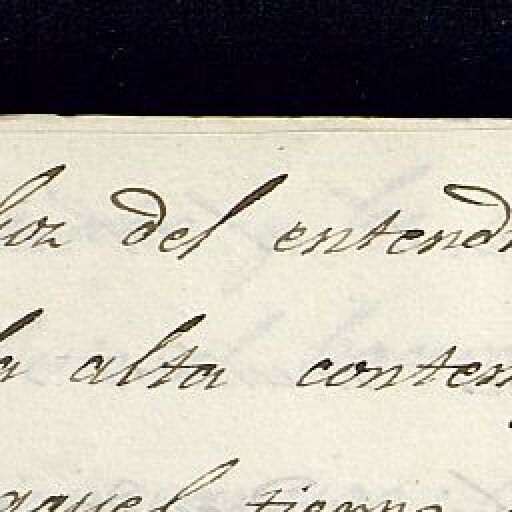 del entend
la alta conten
aquel tiempo